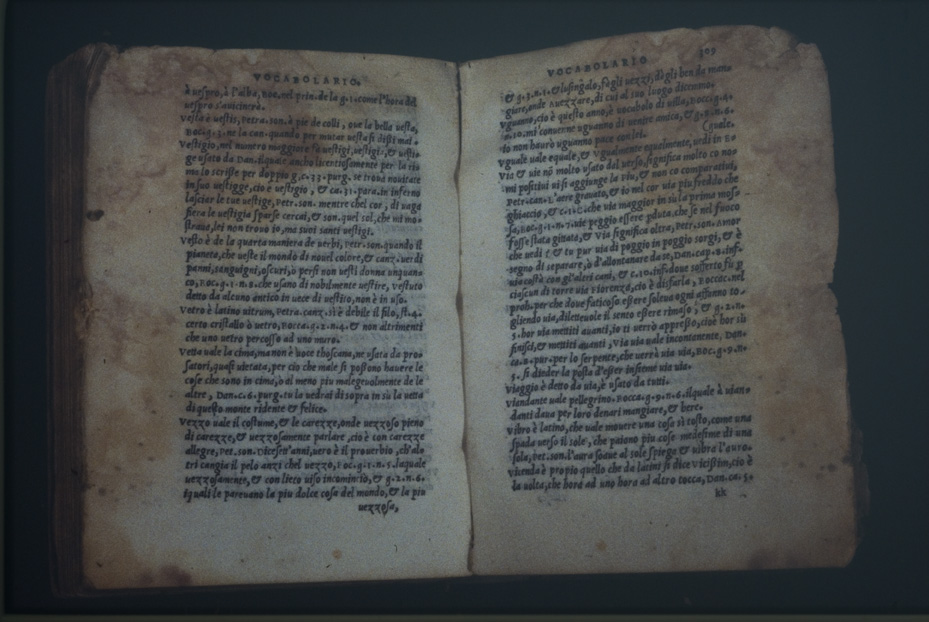 VOCABOLARIO.
à uespro, à l'alba, noe, nel prin. de la g.1. come l'hora del
uespro s'auicinerà.
Vesta è uestis, Petra. son. à pie de colli, oue la bella uesta,
Bocc. g. 3. ne la can. quando per mutar uesta si dissi mai.
Vestigio, nel numero maggiore fa uestigi, uestigi, & uesti
ge usato da Dan. ilquale ancho licentiosamente per la ri
ma lo scrisse per doppio g, c. 33. purg. se troua nouitate
in suo uestigge, cio è uestigio, & ca. 31. para. in inferno
lasciar le tue uestige, Petr. son. mentre chel cor, di uaga
fiera le uestigia sparse cercai, & son. quel sol, che mi mo
straua, lei non trouo io, ma suoi santi uestigi.
Vesto è de la quarta maniera de uerbi, Petr. son. quando il
pianeta, che ueste il mondo di nouel colore, & canz. uerdi
panni, sanguigni, oscuri, ò persi non uesti donna unquan
co, Boc. g. 1. n. che usano di nobilmente uestire, uestuto
detto da alcuno antico in uece di uestito, non è in uso.
Vetro è latino uitrum, Petra. canz. si è debile il filo, st. 4.
certo cristallo ò uetro, Bocca. g. 2. n. 4. & non altrimenti
che uno uetro percosso ad uno muro.
Vetta uale la cima, ma non è uoce thoscana, ne usata da pro
satori, quasi uietata, per cio che mal si possono hauere le
cose che sono in cima, ò al meno piu malegeuolmente de le
altre, Dan. c. 6. purg. tu la uedrai di sopra in su la uetta
di questo monte ridente & felice.
Vezzo uale il costume, & le carezze, onde uezzoso pieno
di carezze, & uezzosamente parlare, cio è con carezze
allegre, Pet. son. Dicesett'anni, uero è il prouerbio, ch'al
tri cangia il pelo anzi chel uezzo, Boc. g. 1. n. 5. laquale
uezzosamente, & con lieto uiso incominciò, & g. 2. n. 6.
iquali le pareuano la piu dolce cosa del mondo, & la piu
uezzosa,
VOCABOLARIO 309
& g. 3. n. 1. & lusingādo, fagli uezzi, dà gli ben da man
giare, onde Auezzare, di cui al suo luogo diccemo.
Vguanno, cio è questo anno, è uocabolo di uilla, Bocc. g. 4.
n. 10. mi conuerne uguanno di uentre andica, & g. 2. n. 6.
io non hauro uguanno pace con lei. (quale.
Vguale uale equale, & Vgualmente equelmente, urdi in E
Via & uie nō molto usato dal uerso, significa molto co no
mi positiui ui si aggiunge la piu, & non co comparatiui,
Petr. can. L'aere grauato, & io nel cor uia piu freddo che
ghiaccio, & c. 1. C. che uia maggior in su la prima mos
sa, Boc. g. 1. n. 7. uie peggio essere pduta, che se nel fuoco
fosse stata gittata, & Via significa oltra, Petr. son. Amor
che uedi (& tu pur uia di poggio in poggio sorgi, & è
segno di separare, ò d'allontanare da se, Dan. cap. 8. inf.
uia costà con gl'altri cani, & c. 10. inf. doue sofferto fu p
ciascun di torre uia Fiorenza, cio è disfarla, Boccac. nel
proh. per che doue faticoso essere soleua ogni affanno to
gliendo uia, dilettevole il sento essere rimaso, & g. 2. n.
5. hor uia mettiti auanti, io ti uerrò appresso, cioè hor sù
finisci, & mettiti auanti, Via uia uale incontanente, Dan.
ca. 8. pur. per lo serpente, che uerrà uia uia, Boc. g. 9. n.
5. si dieder la posta d'esser insieme uia uia.
Viaggio è detto da uia, è usato da tutti.
Viandante uale pellegrino. Bocca. g. 9. n. 6. ilquale à uian
danti daua per loro denari mangiare, & bere.
Vibro è latino, che uale mouere una cosa sì tosto, come una
spada uerso il sole, che paiono piu cose medesime di una
sola, Pet. son. l'aura soaue al sole spiega & uibra l'auro.
Vicenda è propio quello che da latini si dice Vicissim, cio è
la uolta, che hora ad uno hora ad altro tocca, Dan. ca. 5.
kk